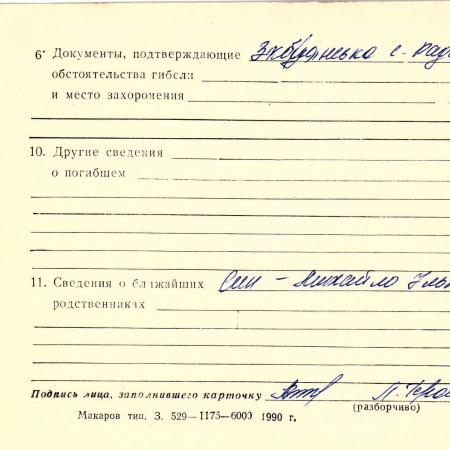 6. Документы, подтверждающие
обстоятельства гибели
и место захоронения
10. Другие сведения
о погибшем
11. Сведения о ближайших Син – Михайло
родственниках
Подпись лица, заполнившего карточку
(разборчиво)
Макаров тип. З. 529—1175—6000 1990 г.